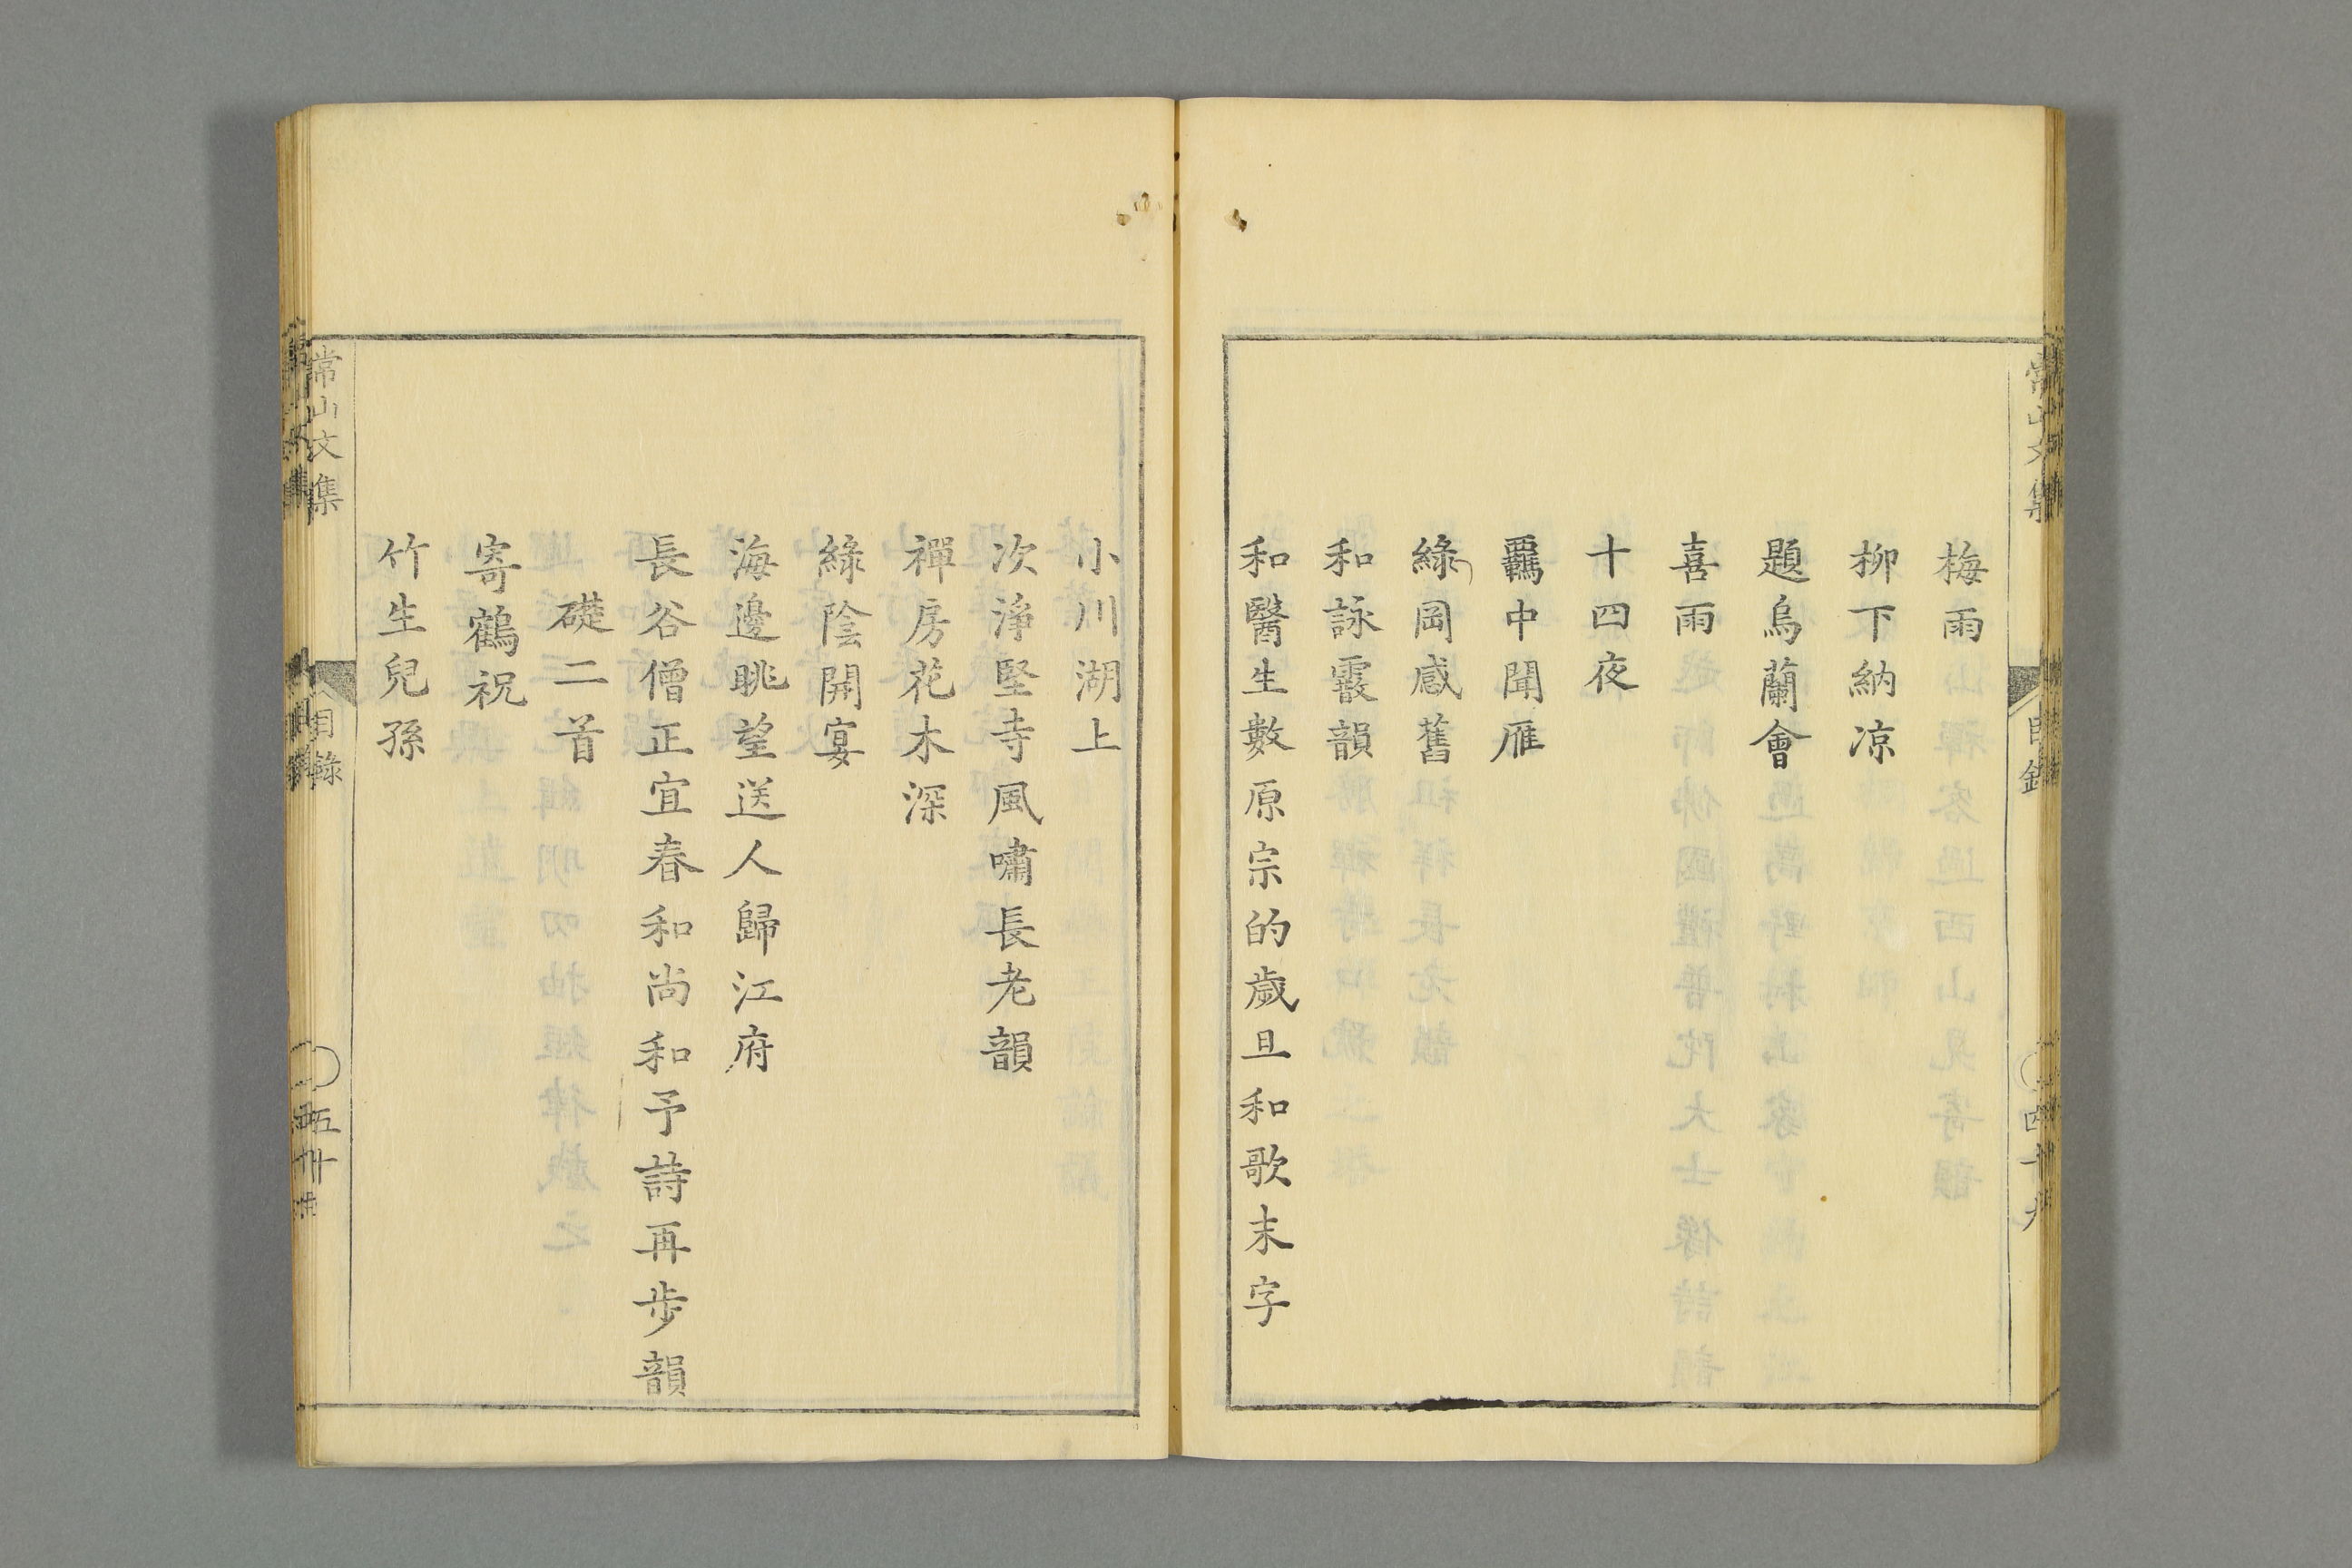 梅雨
柳下納凉
題烏蘭會
喜雨
十四夜
羈中聞雁
綠岡感舊
和詠霞韻
和醫生數原宗的歲旦和歌末字
小川湖上
次淨堅寺風嘯長老韻
禪房花木深
綠陰開宴
海邊眺望送人歸江府
長谷僧正宜春和尚和予詩再步韻
礎二首
寄鶴祝
竹生兒孫
常山文集
目錄
五十